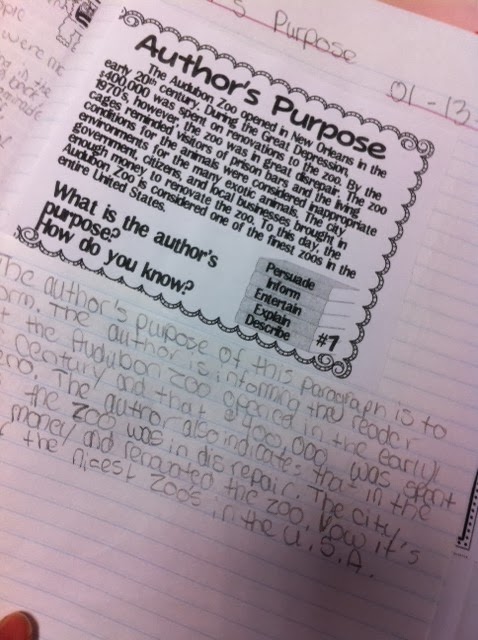 's Purpose
01-13
Author's Purpose
The Audubon Zoo opened in New Orleans in the
early 20th century. During the Great Depression,
$400,000 was spent on renovations to the zoo. By the
1970's, however, the zoo was in great disrepair. The zoo
cages reminded visitors of prison bars and the living
conditions for the animals were considered inappropriate
environments for the many exotic animals. The city
government, citizens, and local businesses brought in
enough money to renovate the zoo. To this day, the
Audubon Zoo is considered one of the finest zoos in the
entire United States.
What is the author's
purpose?
How do you know?
Persuade
Inform
Entertain
Explain
Describe
#7
The author's purpose of this paragraph is to
orm. The author is informing they reader
t the Audubon Zoo opened in the early
century and that $400,000 was spent
eno. The author also indicates that in the
the zoo was in disrepair. The city's
money and renovated the zoo. Now it's
the nicest zoos in the U.S.A.